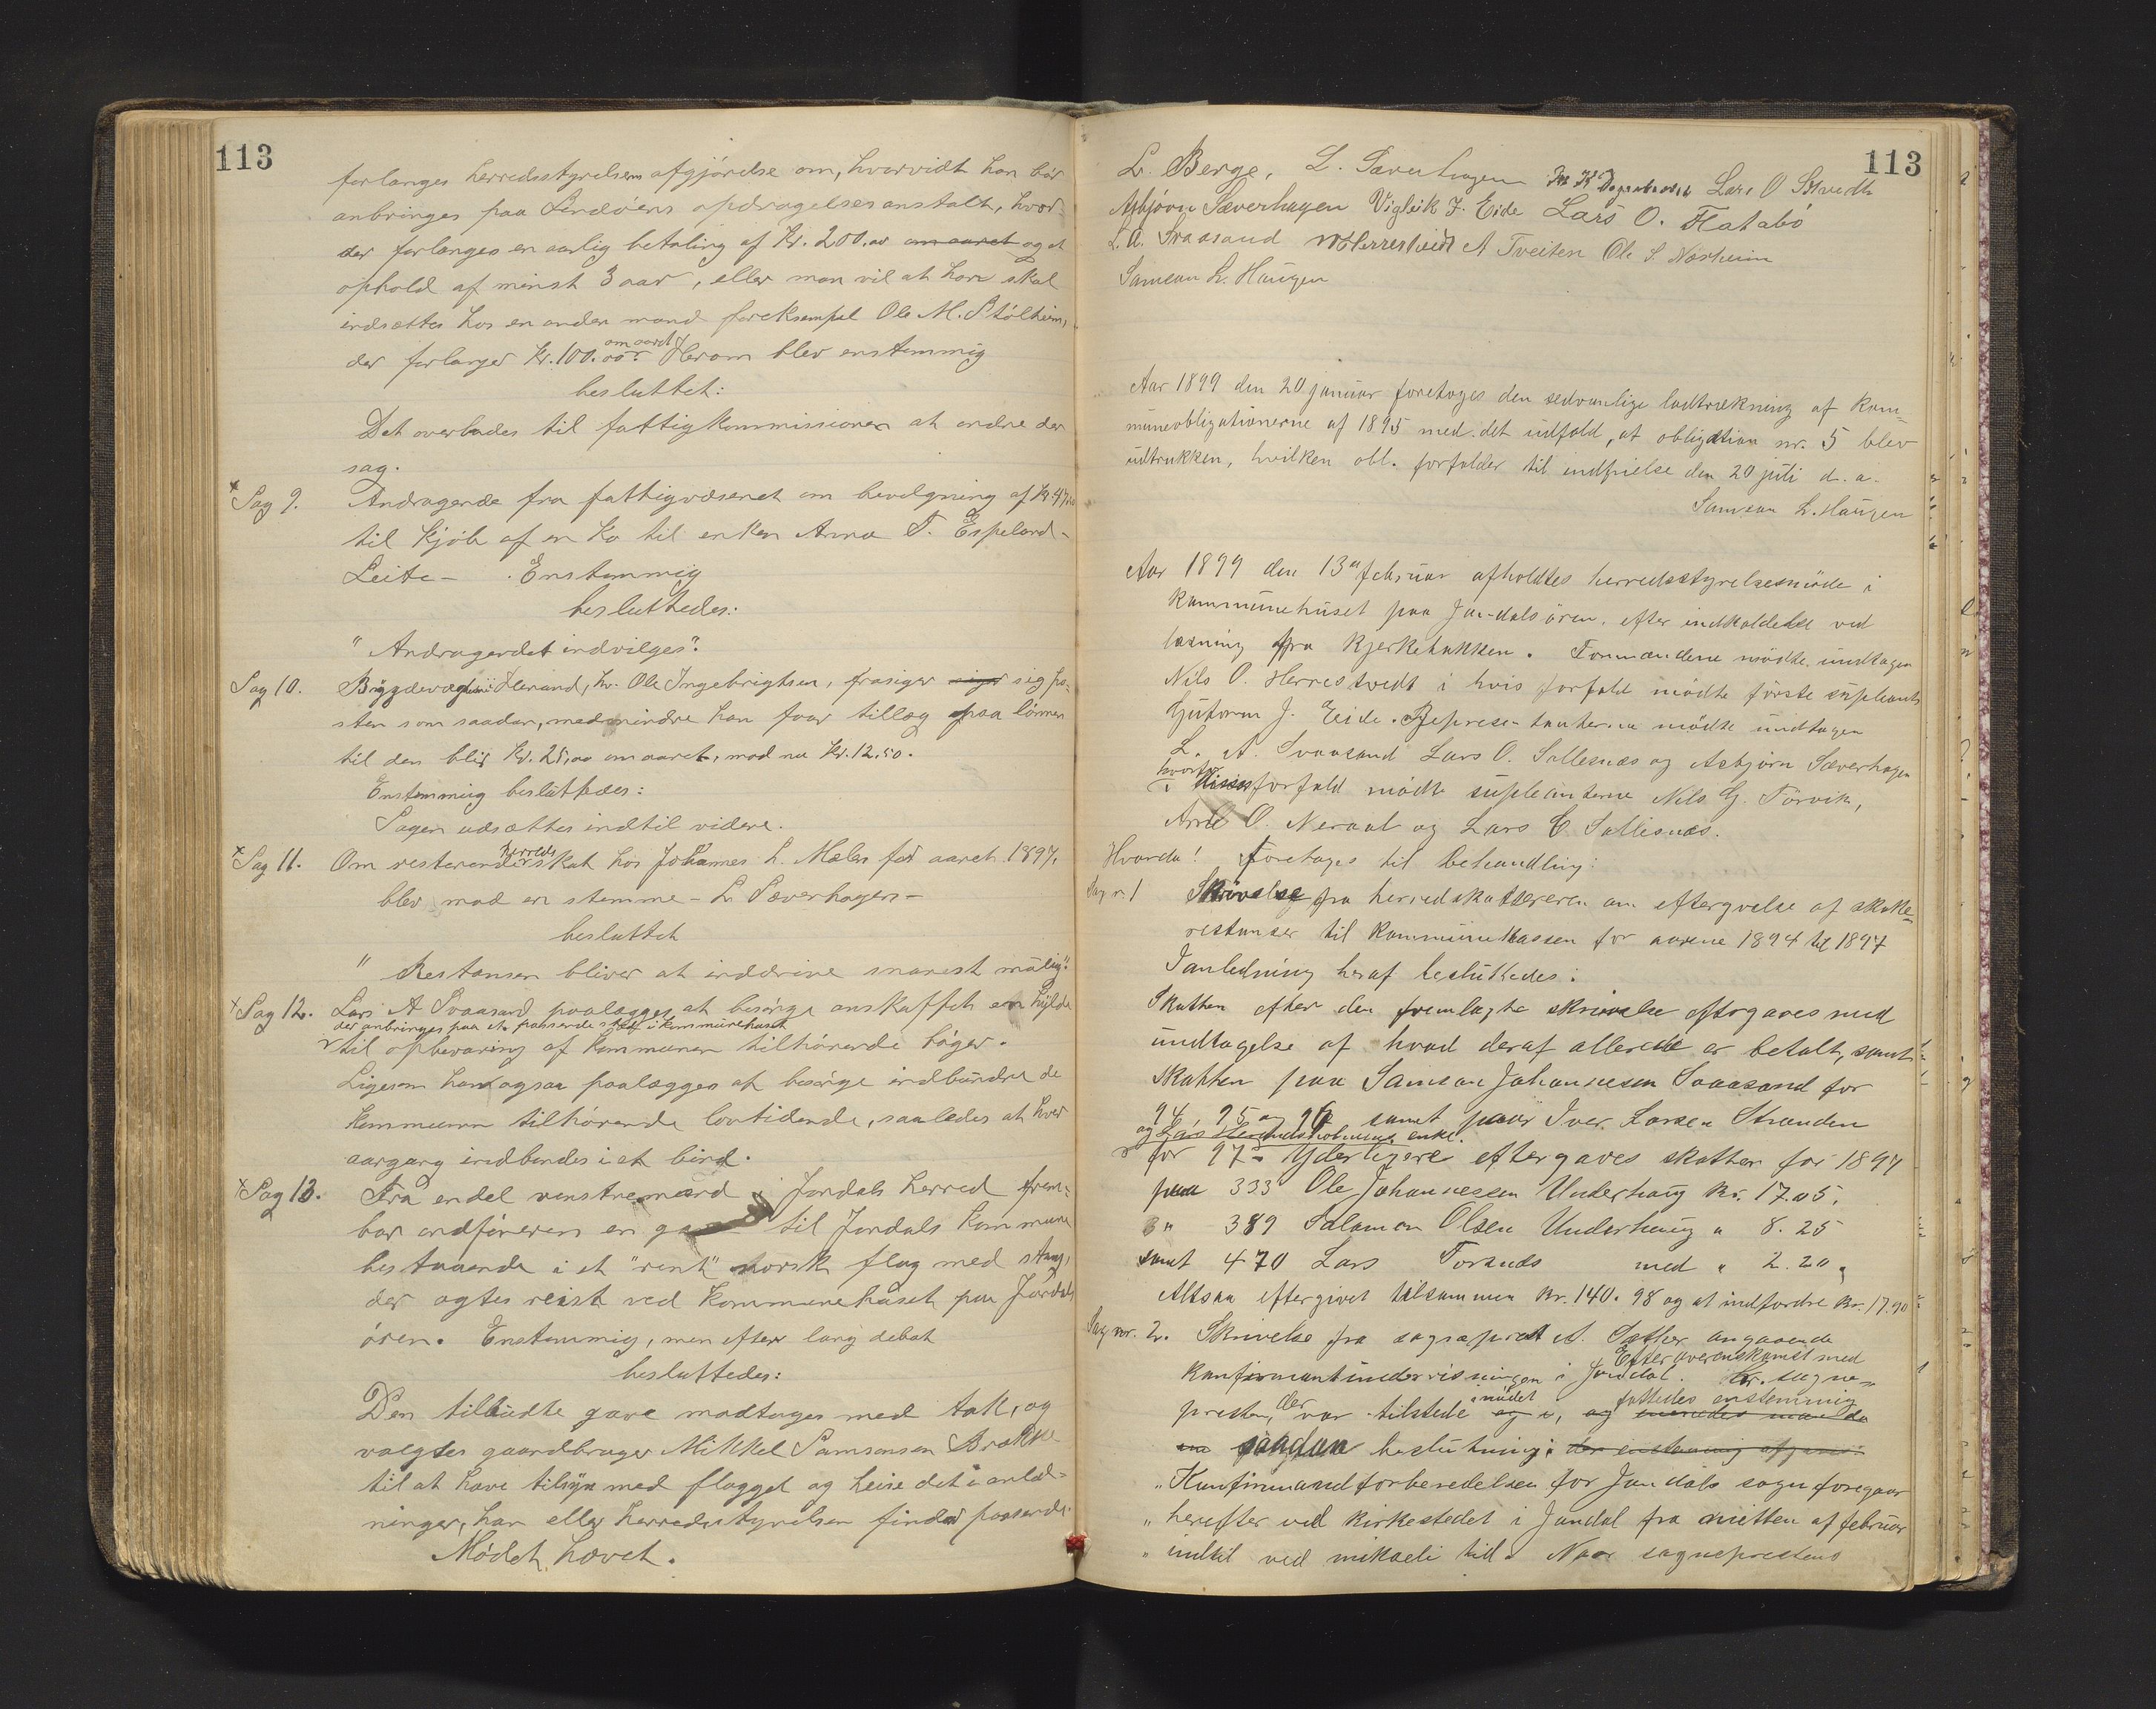 113
forlanges herredsstyrelsens afgjørelse om, hvorvidt han bør
anbringes paa Lindøens opdragelsesanstalt, hvor-
der forlanges en aarlig betaling af kr. 200.00 om aaret og et
ophold af minst 3 aar, eller man vil at han skal
indsættes hos en anden mand foreksempel Ole M. Stølheim,
der forlanger kr. 100.00 om aaret. Herom blev enstemmig
besluttet:
Det overlades til fattigkommissionen at ordne den
sag.
x Sag 9. Andragende fra fattigvæsenet om bevilgning af kr. 47,00
til kjøb af en ko til enken Anna T. Espeland-
Leite - . Enstemmig
besluttedes:
"Andragendet indvilges".
Sag 10. Bygdevægter i Herand, hr. Ole Ingebrigtsen, frasiger siger sig po-
sten som saadan, medmindre han faar tillæg paa lønnen
til den blir kr. 25,00 om aaret, mod nu kr. 12,50.
Enstemmig besluttedes:
Sagen udsættes indtil videre.
x Sag 11. Om resterende herredsskat hos Johannes L. Mælen for aaret 1897.
blev mod en stemme - L Sæverhagen -
besluttet
" Restansen bliver at inddrive snarest mulig".
x Sag 12. Lars A Svaasand paalægges at besørge anskaffet en hylde
der anbringes paa et passende sted i kommunehuset
til opbevaring af kommunen tilhørende bøger.
Ligesom han ogsaa paalægges at besørge indbundne de
kommunen tilhørende lovtidende, saaledes at hver
aargang indbindes i et bind.
x Sag 13. Fra endel venstremænd i Jondals herred frem-
bar ordføreren en gave til Jondals kommune
bestaaende i et "rent" norsk flag med stang,
der agtes reist ved kommunehuset paa Jondals
øren. Enstemmig, men efter lang debat
besluttedes:
Den tilbudte gave modtages med tak, og
valgtes gaardbruger Mikkel Samsonsen Brække
til at have tilsyn med flagget og heise det i anled-
ninger, han eller herredsstyrelsen finder passende.
Mødet hævet.
113
L. Berge, L. Sæverhagen Lars O
Asbjørn Sæverhagen Vigleik J. Eide Lars O. Flatabø
L. A. Svaasand N O Herrestvedt A Tveiten Ole S. Norheim
Samson L. Haugen
Aar 1899 den 20 januar foretoges den sedvanlige lodtrækning af kom-
muneobligationerne af 1895 med det udfald, at obligation nr. 5 blev
udtrukken, hvilken obl. forfalder til indfrielse den 20 juli d. a.
Samson L. Haugen
Aar 1899 den 13de februar afholdtes herredsstyrelsesmøde i
kommunehuset paa Jondalsøren, efter indkaldelse ved
læsning fra kjerkebakken. Formændene mødte undtagen
Nils O. Herrestvedt i hvis forfald mødte første supleant
Guttorm J. Eide. Repræsentanterne mødte undtagen
L. A. Svaasand Lars O. Sollesnæs og Asbjørn Sæverhagen
i hvis forfald mødte supleanterne Nils G. Torvik,
Arne O. Neraal og Lars C Sollesnæs.
Hvorda! Foretoges til behandling:
Sag nr. 1 Skrivelse fra herredskasereren om eftergivelse af skatte-
restanser til kommunekassen for aarene 1894 til 1897
I anledning heraf besluttedes:
Skatten efter den fremlagte skrivelse eftergaves med
undtagelse af hvad deraf allerede er betalt, samt
skatten paa Samson Johannesen Svaasand for
94, 95 og 96 samt paa Iver Larsen Stranden
og Lars enke.
for 97 - Yderligere eftergaves skatten for 1897
paa 333 Ole Johannessen Underhaug kr. 17.05,
" 389 Salomon Olsen Underhaug " 8.25
samt 470 Lars Torsnæs med " 2.20,
Altsaa eftergivet tilsammen kr. 140.98 og at indfordre kr. 17.90
Sag nr. 2. Skrivelse fra sogneprest A. Sæther angaaende
konfirmantundervisningen i Jondal. Efter overenskomst med hr. sogne-
presten, der var tilstede i mødet og i, og fattedes enstemmig enedes man da
en saadan beslutning: der enstemmig afgaves:
"Konfirmandforberedelsen for Jondals sogn foregaar
" herefter ved kirkestedet i Jondal fra midten af februar
" indtil ved mikaeli tid. Naar sogneprestens